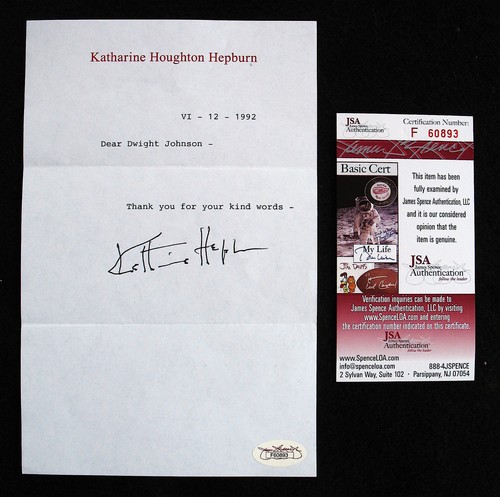 Katharine Houghton Hepburn
VI - 12 - 1992
Dear Dwight Johnson -
Thank you for your kind words -
Katharine Hepburn
F60893
JSA
James Spence
Authentication
Certification Number:
F 60893
Basic Cert
This item has been
fully examined by
James Spence Authentication, LLC
and it is our considered
opinion that the
item is genuine.
My Life
JSA
James Spence
Authentication
follow the leader
Verification inquiries can be made to
James Spence Authentication, LLC by visiting
www.SpenceLOA.com and entering
the certification number indicated on this certificate.
JSA
James Spence
Authentication
follow the leader
www.SpenceLOA.com
info@spenceloa.com 888-4JSPENCE
2 Sylvan Way, Suite 102 - Parsippany, NJ 07054